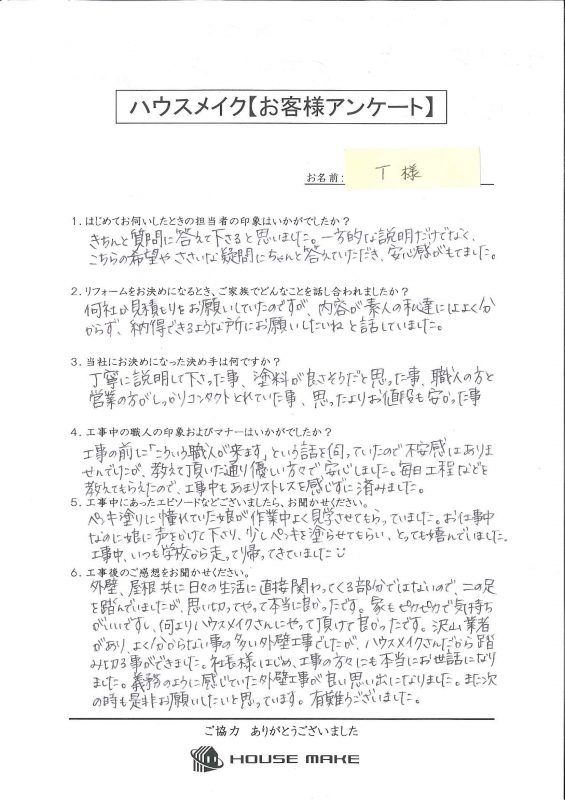 ハウスメイク【お客様アンケート】
お名前： T 様
1．はじめてお伺いしたときの担当者の印象はいかがでしたか？
きちんと質問に答えて下さると思いました。一方的な説明だけでなく、
こちらの希望やささいな疑問にちゃんと答えていただき、安心感がもてました。
2．リフォームをお決めになるとき、ご家族でどんなことを話し合われましたか？
何社か見積もりをお願いしていたのですが、内容が素人の私達にはよく分
からず、納得できるような所にお願いしたいねと話していました。
3．当社にお決めになった決め手は何ですか？
丁寧に説明して下さった事、塗料が良さそうだと思った事、職人の方と
営業の方がしっかりコンタクトとれていた事、思ったよりお値段も安かった事
4．工事中の職人の印象およびマナーはいかがでしたか？
工事の前に「こういう職人が来ます」という話を伺っていたので不安感はありま
せんでしたが、教えて頂いた通り優しい方々で安心しました。毎日工程などを
教えてもらえたので、工事中もあまりストレスを感じずに済みました。
5．工事中にあったエピソードなどございましたら、お聞かせください。
ペンキ塗りに憧れていた娘が作業中よく見学させてもらっていました。お仕事中
なのに娘に声をかけて下さり、少しペンキを塗らせてもらい、とっても嬉んでいました。
工事中、いつも学校から走って帰ってきていました
6．工事後のご感想をお聞かせください。
外壁、屋根共に日々の生活に直接関わってくる部分ではないので、二の足
を踏んでいましたが、思い切ってやって本当に良かったです。家もピカピカで気持ち
がいいですし、何よりハウスメイクさんにやって頂けて良かったです。沢山業者
があり、よく分からない事の多い外壁工事でしたが、ハウスメイクさんだから踏
み切る事ができました。社長様はじめ、工事の方々にも本当にお世話になり
ました。義務のように感じていた外壁工事が良い思い出になりました。また次
の時も是非お願いしたいと思っています。有難うございました。
ご協力 ありがとうございました
HOUSE MAKE